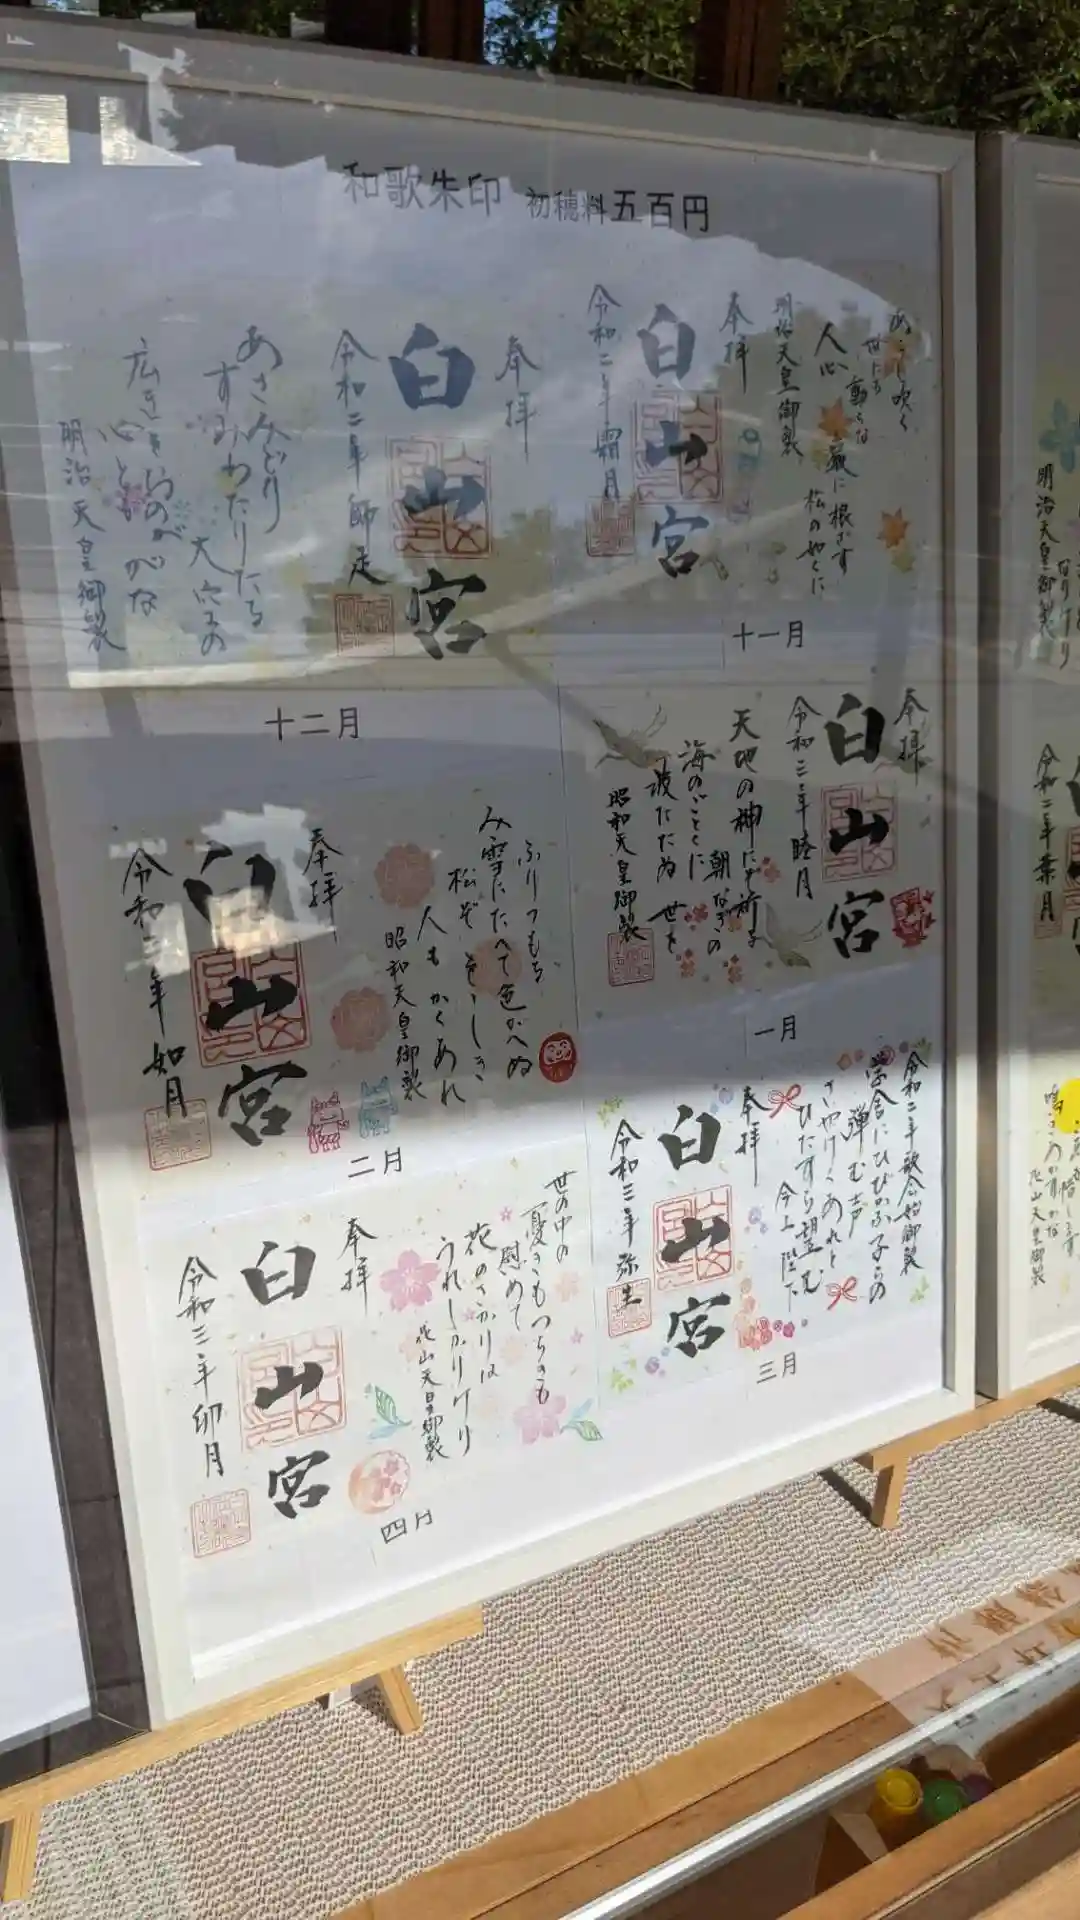 和歌朱印 初穂料五百円
吹く
世にも
動らな
人心
巌に根ざす
松のやうに
明治天皇御製
奉拝
白山宮
令和二年霜月
十一月
奉拝
白山宮
令和二年師走
あさみどり
すみわたりたる
大空の
広きをおのが
心ともがな
明治天皇御製
十二月
奉拝
白山宮
令和三年睦月
天地の神にぞ祈る
朝なぎの
海のごとくに
波たたぬ世を
昭和天皇御製
一月
ふりつもる
み雪にたへて色かへぬ
松ぞををしき
人もかくあれ
昭和天皇御製
奉拝
白山宮
令和三年如月
二月
令和二年歌会始御製
学舎にひびかふ子らの
弾む声
さやけくあれと
ひたすら望む
今上陛下
奉拝
白山宮
令和三年弥生
三月
世の中の
憂きもつらきも
慰めて
花のさかりは
うれしかりけり
花山天皇御製
奉拝
白山宮
令和三年卯月
四月
明治天皇御製
なりけり
令和二年葉月
花山天皇御製